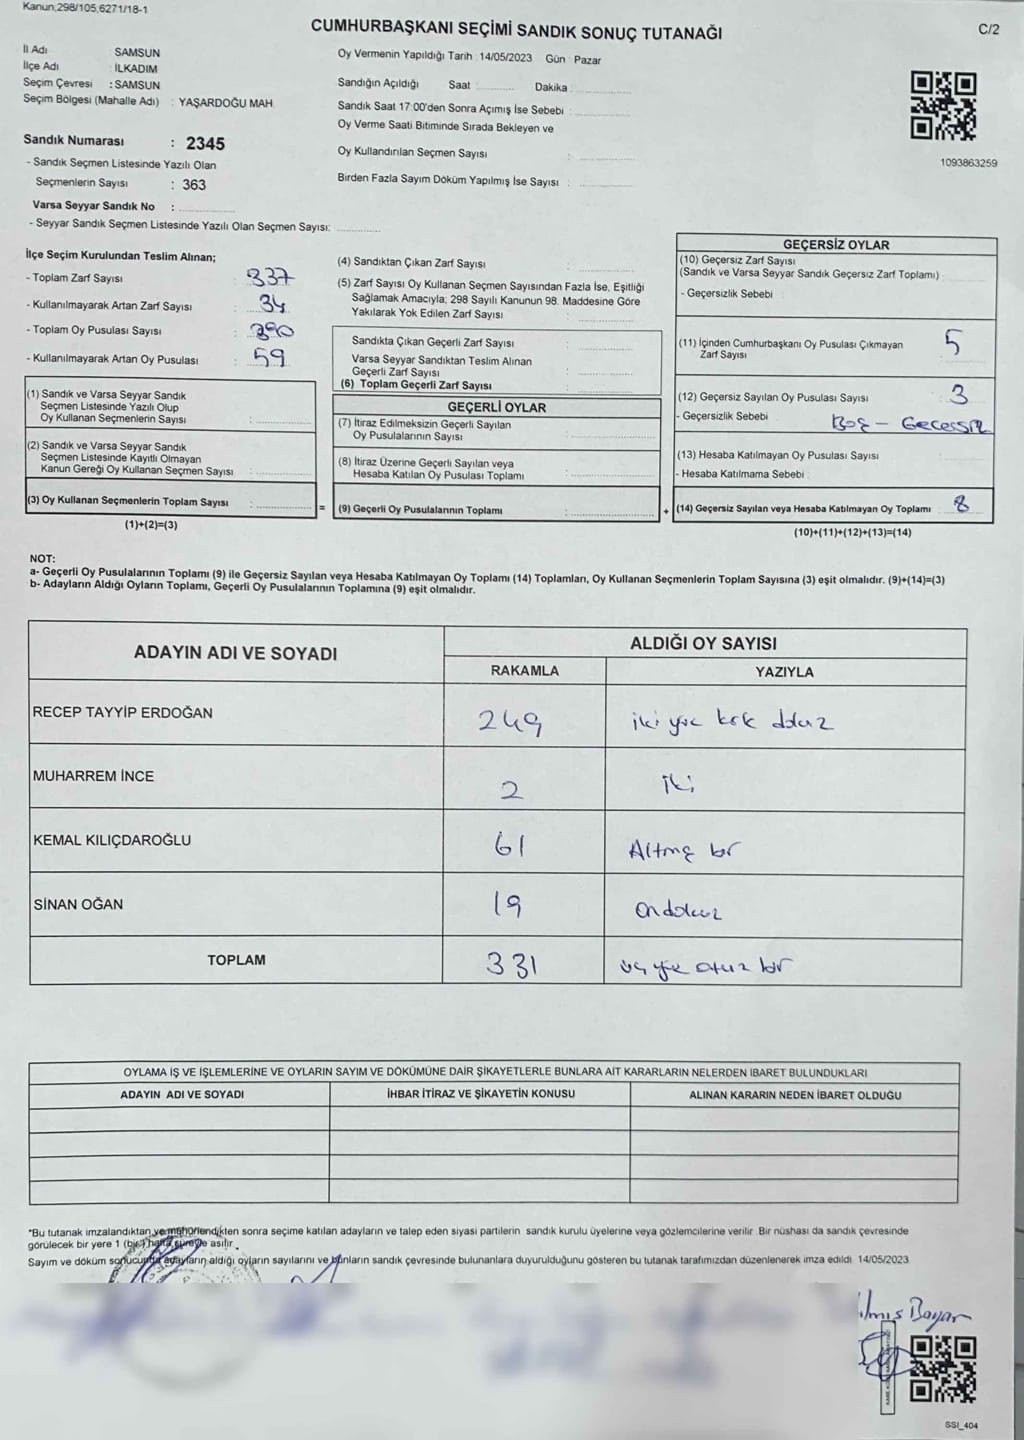 Kanun,298/105,6271/18-1
CUMHURBAŞKANI SEÇİMİ SANDIK SONUÇ TUTANAĞI
C/2
İl Adı SAMSUN
İlçe Adı : İLKADIM
Seçim Çevresi : SAMSUN
Seçim Bölgesi (Mahalle Adı) : YAŞARDOĞU MAH.
Sandık Numarası : 2345
- Sandık Seçmen Listesinde Yazılı Olan
Seçmenlerin Sayısı : 363
Varsa Seyyar Sandık No :
- Seyyar Sandık Seçmen Listesinde Yazılı Olan Seçmen Sayısı:
Oy Vermenin Yapıldığı Tarih : 14/05/2023 Gün : Pazar
Sandığın Açıldığı Saat Dakika :
Sandık Saat 17:00'den Sonra Açımış İse Sebebi :
Oy Verme Saati Bitiminde Sırada Bekleyen ve
Oy Kullandırılan Seçmen Sayısı :
Birden Fazla Sayım Döküm Yapılmış İse Sayısı :
1093863259
İlçe Seçim Kurulundan Teslim Alınan;
- Toplam Zarf Sayısı : 337
- Kullanılmayarak Artan Zarf Sayısı : 34
- Toplam Oy Pusulası Sayısı : 390
- Kullanılmayarak Artan Oy Pusulası : 59
(1) Sandık ve Varsa Seyyar Sandık
Seçmen Listesinde Yazılı Olup
Oy Kullanan Seçmenlerin Sayısı :
(2) Sandık ve Varsa Seyyar Sandık
Seçmen Listesinde Kayıtlı Olmayan
Kanun Gereği Oy Kullanan Seçmen Sayısı :
(3) Oy Kullanan Seçmenlerin Toplam Sayısı :
(1)+(2)=(3)
=
(4) Sandıktan Çıkan Zarf Sayısı :
(5) Zarf Sayısı Oy Kullanan Seçmen Sayısından Fazla İse, Eşitliği
Sağlamak Amacıyla; 298 Sayılı Kanunun 98. Maddesine Göre
Yakılarak Yok Edilen Zarf Sayısı :
Sandıkta Çıkan Geçerli Zarf Sayısı :
Varsa Seyyar Sandıktan Teslim Alınan
Geçerli Zarf Sayısı :
(6) Toplam Geçerli Zarf Sayısı :
GEÇERLİ OYLAR
(7) İtiraz Edilmeksizin Geçerli Sayılan
Oy Pusulalarının Sayısı :
(8) İtiraz Üzerine Geçerli Sayılan veya
Hesaba Katılan Oy Pusulası Toplamı :
(9) Geçerli Oy Pusulalarının Toplamı :
+
GEÇERSİZ OYLAR
(10) Geçersiz Zarf Sayısı
(Sandık ve Varsa Seyyar Sandık Geçersiz Zarf Toplamı) :
- Geçersizlik Sebebi :
(11) İçinden Cumhurbaşkanı Oy Pusulası Çıkmayan 5
Zarf Sayısı
(12) Geçersiz Sayılan Oy Pusulası Sayısı 3
- Geçersizlik Sebebi Boş - Geçersiz
(13) Hesaba Katılmayan Oy Pusulası Sayısı :
- Hesaba Katılmama Sebebi :
(14) Geçersiz Sayılan veya Hesaba Katılmayan Oy Toplamı 8
(10)+(11)+(12)+(13)=(14)
NOT:
a- Geçerli Oy Pusulalarının Toplamı (9) ile Geçersiz Sayılan veya Hesaba Katılmayan Oy Toplamı (14) Toplamları, Oy Kullanan Seçmenlerin Toplam Sayısına (3) eşit olmalıdır. (9)+(14)=(3)
b- Adayların Aldığı Oyların Toplamı, Geçerli Oy Pusulalarının Toplamına (9) eşit olmalıdır.
ADAYIN ADI VE SOYADI
ALDIĞI OY SAYISI
RAKAMLA YAZIYLA
RECEP TAYYİP ERDOĞAN 249 iki yüz kırk dokuz
MUHARREM İNCE 2 iki
KEMAL KILIÇDAROĞLU 61 Altmış bir
SİNAN OĞAN 19 ondokuz
TOPLAM 331 üç yüz otuz bir
OYLAMA İŞ VE İŞLEMLERİNE VE OYLARIN SAYIM VE DÖKÜMÜNE DAİR ŞİKAYETLERLE BUNLARA AİT KARARLARIN NELERDEN İBARET BULUNDUKLARI
ADAYIN ADI VE SOYADI İHBAR İTİRAZ VE ŞİKAYETİN KONUSU ALINAN KARARIN NEDEN İBARET OLDUĞU
*Bu tutanak imzalandıktan ve mühürlendikten sonra seçime katılan adayların ve talep eden siyasi partilerin sandık kurulu üyelerine veya gözlemcilerine verilir. Bir nüshası da sandık çevresinde
görülecek bir yere 1 (bir) hafta süreyle asılır.
Sayım ve döküm sonucunda adayların aldığı oyların sayılarını ve bunların sandık çevresinde bulunanlara duyurulduğunu gösteren bu tutanak tarafımızdan düzenlenerek imza edildi. 14/05/2023
SSI_404